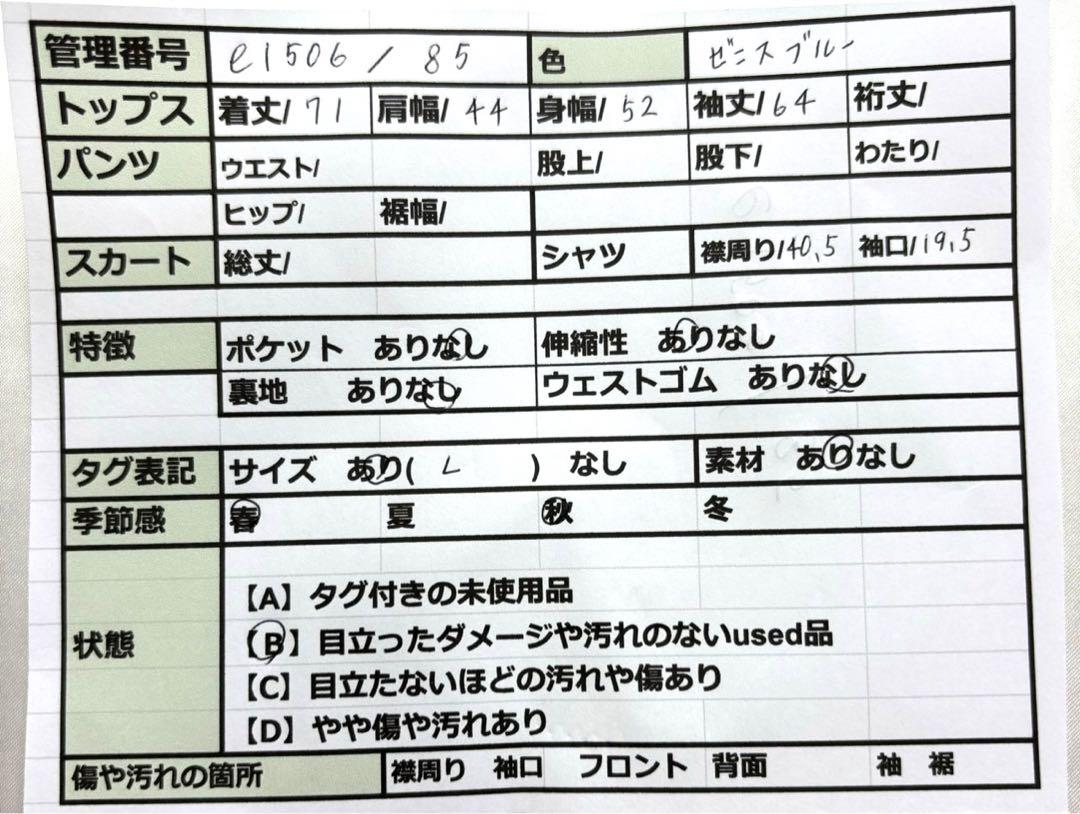 管理番号 e1506 / 85 色 ゼニスブルー
トップス 着丈/ 71 肩幅/ 44 身幅/ 52 袖丈/ 64 裄丈/
パンツ ウエスト/ 股上/ 股下/ わたり/
ヒップ/ 裾幅/
スカート 総丈/ シャツ 襟周り/40,5 袖口/19,5
特徴 ポケット ありなし 伸縮性 ありなし
裏地 ありなし ウェストゴム ありなし
タグ表記 サイズ あり( L ) なし 素材 ありなし
季節感 春 夏 秋 冬
状態
【A】タグ付きの未使用品
【B】目立ったダメージや汚れのないused品
【C】目立たないほどの汚れや傷あり
【D】やや傷や汚れあり
傷や汚れの箇所 襟周り 袖口 フロント 背面 袖 裾